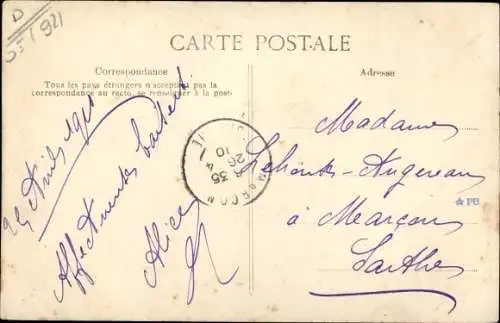 D
921
CARTE POSTALE
Correspondance
Adresse
Tous les pays étrangers n'acceptent pas la
correspondance au recto, se renseigner à la poste
25 Avril 1910
Affectueuses
Alice
35
26
10
4
MARÇON
Madame
Augereau
à Marçon
Sarthe
PB